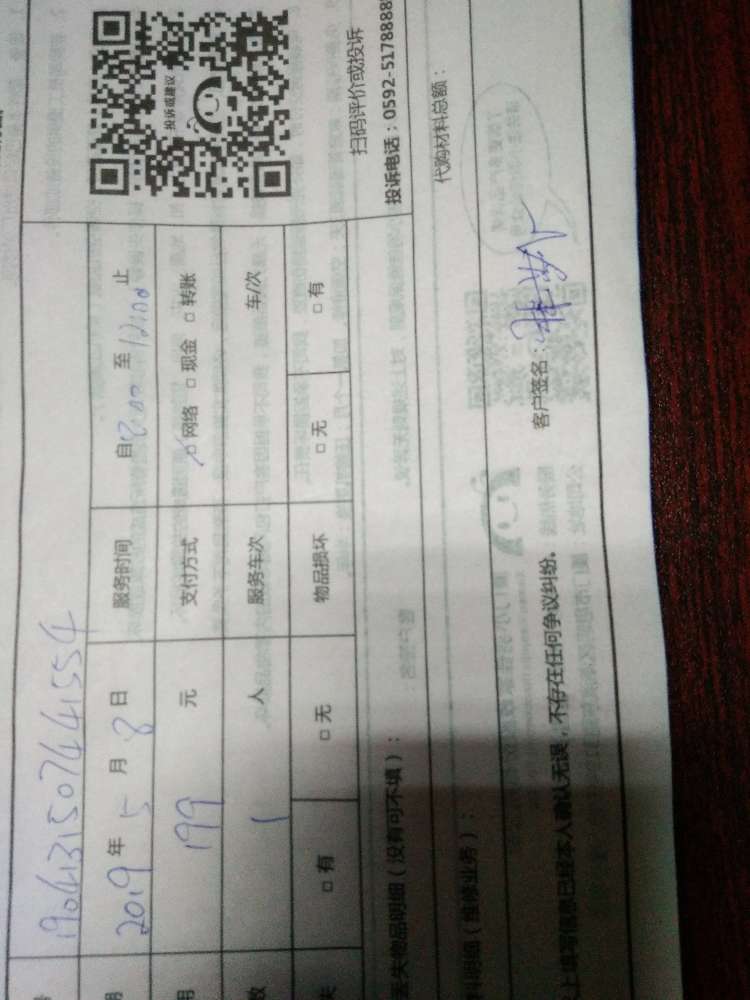 号 190413150744 1554
期 2019年5月8日 服务时间 自8:00至12:00止
用 199元 支付方式 □网络 □现金 □转账
数 1人 服务车次 车/次
失 □有 □无 物品损坏 □无 □有
投诉或建议
扫码评价或投诉
投诉电话：0592-5178888
丢失物品明细（没有可不填）：
料明细（维修业务）： 代购材料总额：
上填写信息已经本人确认无误，不存在任何争议纠纷。 客户签名：